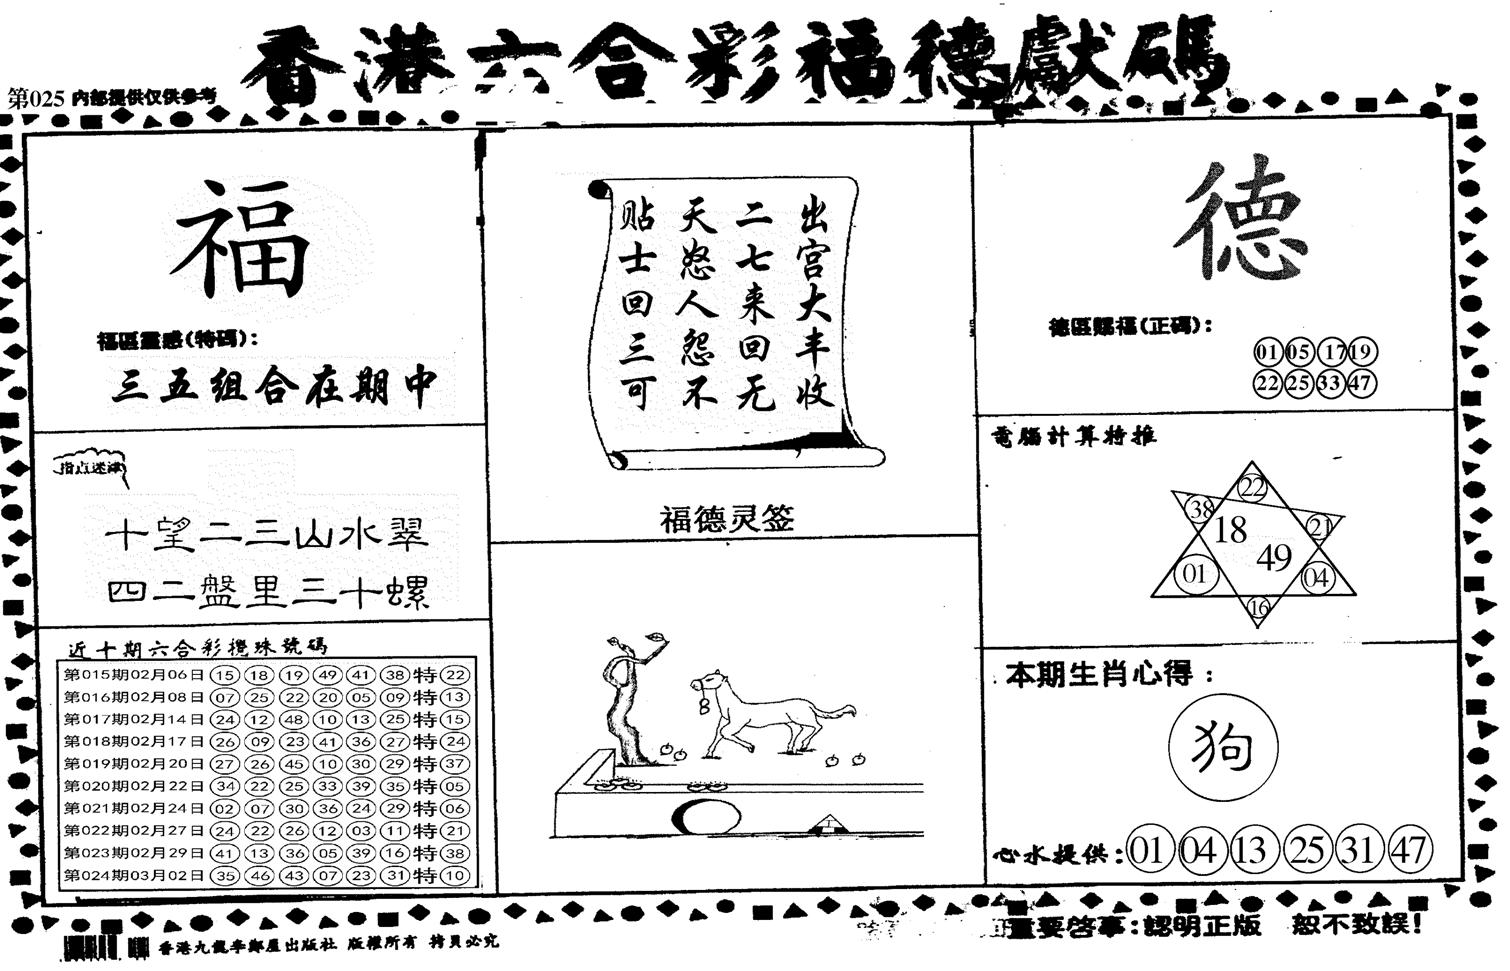 香港六合彩福德獻碼
第025 内部提供仅供参考
福
福區靈感(特碼):
三五组合在期中
指点迷津
十望二三山水翠
四二盤里三十螺
近十期六合彩攪珠號碼
第015期02月06日 15 18 19 49 41 38 特 22
第016期02月08日 07 25 22 20 05 09 特 13
第017期02月14日 24 12 48 10 13 25 特 15
第018期02月17日 26 09 23 41 36 27 特 24
第019期02月20日 27 26 45 10 30 29 特 37
第020期02月22日 34 22 25 33 39 35 特 05
第021期02月24日 02 07 30 36 24 29 特 06
第022期02月27日 24 22 26 12 03 11 特 21
第023期02月29日 41 13 36 05 39 16 特 38
第024期03月02日 35 46 43 07 23 31 特 10
出宫大丰收
二七来回无
天怒人怨不
贴士回三可
福德灵签
8
德
德區赐福(正碼):
01 05 17 19
22 25 33 47
電腦計算特推
22
38 21
18
49
01 04
16
本期生肖心得:
狗
心水提供:01 04 13 25 31 47
香港九龍李鄭屋出版社 版權所有 拷貝必究
重要啓事:認明正版 恕不致誤!